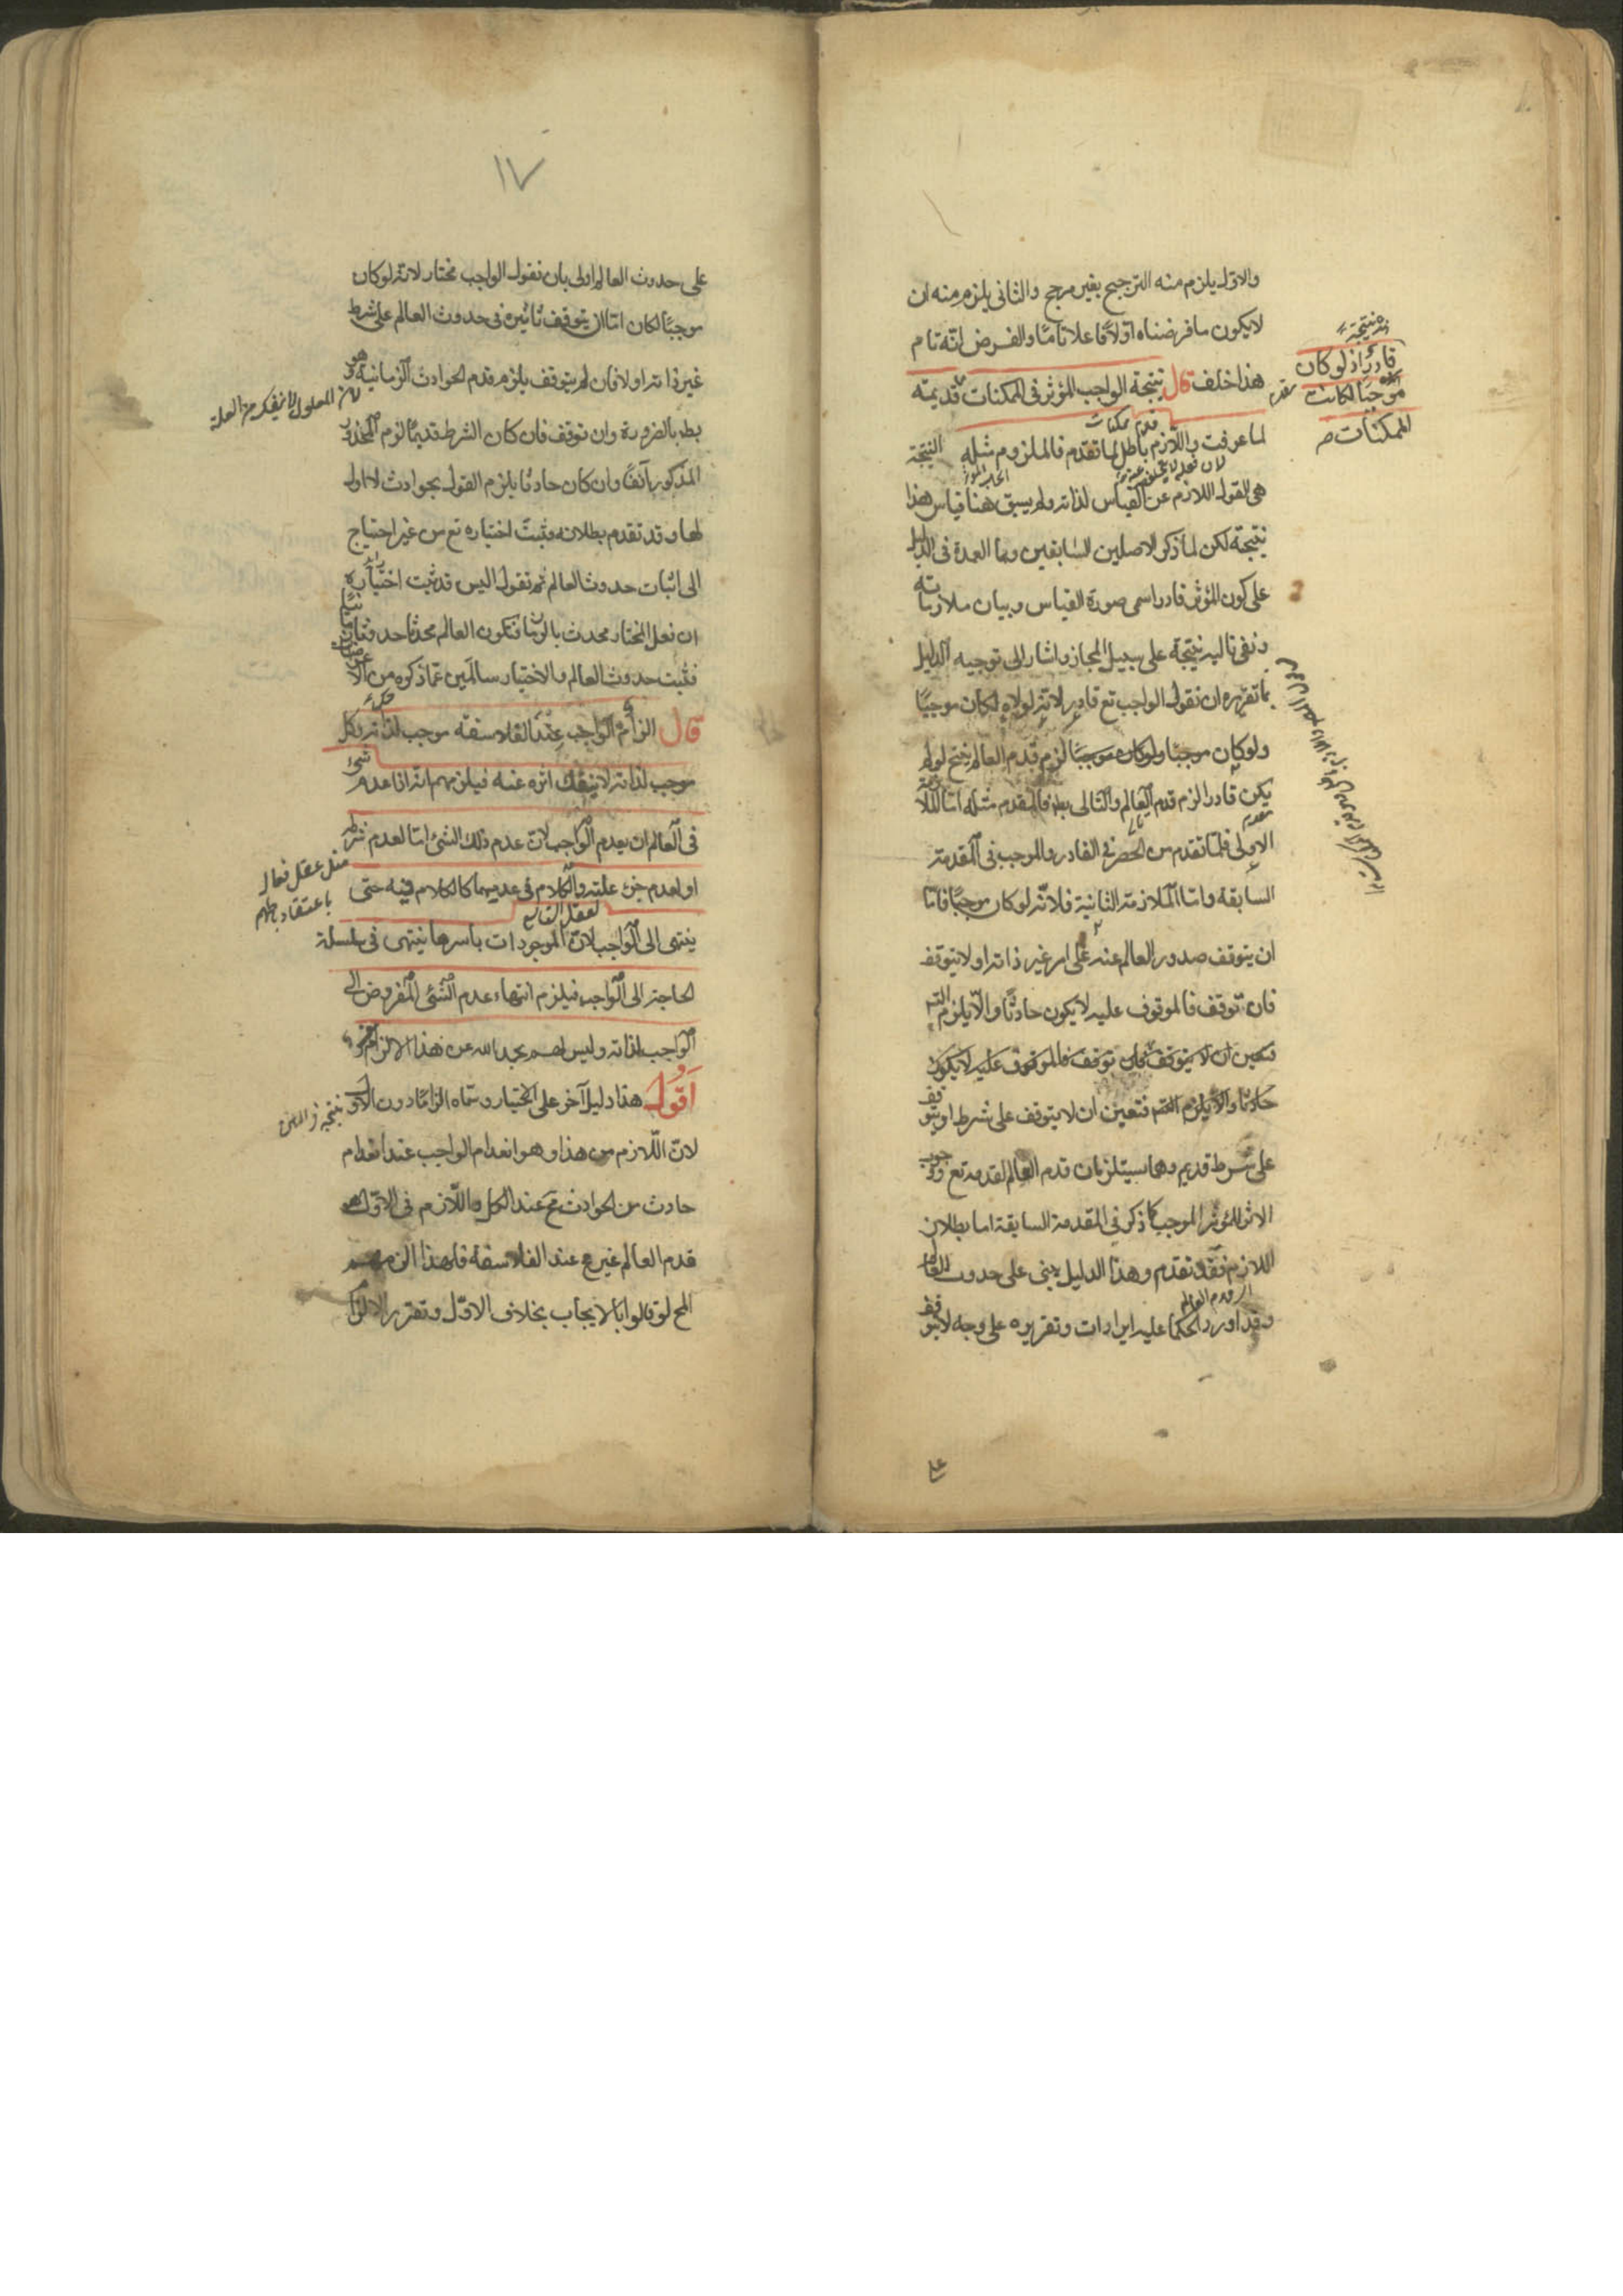 والاول يلزم منه الترجيح بغير مرجح والثانى يلزم منه ان
لا يكون ما فرضناه اوّلا فاعلا تامًا والفرض انّه تام
هذا خلف قال نتيجة الواجب المؤثر فى الممكنات
قادر اذ لو كان
موجبًا لكانت
الممكنات
قديمة
لما عرفت واللازم باطل لما تقدم فالملزوم مثله النتيجة
هى القول اللازم عن القياس لذاته ولم يسبق هنا قياس هذا
نتيجة لكن لما ذكر الاصلين السابقين وهما العمدة فى الدليل
على كون المؤثر قادرا سمى صورة القياس وبيان ملازمته
ونفى تاليه نتيجة على سبيل المجاز واشار الى توجيه الدليل
بما تقريره ان نقول الواجب تع قادر لانه لولاه لكان موجبًا
ولو كان موجبًا لزم قدم العالم ينتج لو لم
يكن قادرا لزم قدم العالم والتالى بط فالمقدم مثله اما الملازمة
الاولى فلما تقدم من الحصر فى القادر والموجب فى المقدمة
السابقة واما الملازمة الثانية فلانّه لو كان موجبًا فامّا
ان يتوقف صدور العالم عنه على امر غير ذاته او لا يتوقف
فان توقف فالموقوف عليه لا يكون حادثًا والّا يلزم التس
فتعين ان لا يتوقف فان توقف فالموقوف عليه لا يكون
حادثا والّا يلزم التس فتعين ان لا يتوقف على شرط او يتوقف
على شرط قديم وهما يستلزمان قدم العالم لقدمه تع ووجوب
الاثر للمؤثر الموجب كما ذكر فى المقدمة السابقة اما بطلان
اللازم فقد تقدم وهذا الدليل يبنى على حدوث العالم
اى قدم العالم
وقد اورد الحكما عليه ايرادات وتقريره على وجه لا يتوقف
على
١٧
على حدوث العالم اولى بان نقول الواجب مختار لانّه لو كان
موجبًا لكان امّا ان يتوقف تاثيره فى حدوث العالم على شرط
غير ذاته او لا فان لم يتوقف يلزم قدم الحوادث الزمانية وهو
لان المعلول لا ينفك من العلة
بط بالضرورة وان توقف فان كان الشرط قديمًا لزم المحذور
المذكور آنفًا وان كان حادثا يلزم القول بحوادث لا اول
لها وقد تقدم بطلانه فثبت اختياره تع من غير احتياج
الى اثبات حدوث العالم ثم نقول اليس قد ثبت اختياره
ان فعل المختار محدث بالزمان فتكون العالم محدثا
فثبت حدوث العالم والاختيار سالمين عمّا ذكروه من
قال الزام الواجب عند الفلاسفة موجب لذاته وكل
موجب لذاته لا ينفك اثره عنه فيلزمهم انّه اذا عدم شئ
فى العالم ان يعدم الواجب لان عدم ذلك الشئ امّا لعدم شرطه
او لعدم جزء علته والكلام فى عدمهما كالكلام فيه حتى
مثل عقل فعال
باعتقاد باطلهم
ينتهى الى الواجب لانّ الموجودات باسرها ينتهى فى سلسلة
الحاجة الى الواجب فيلزم انتهاء عدم الشئ المفروض الى
الواجب لذاته وليس لهم بحمد الله عن هذا الالزام
اقول هذا دليل آخر على الاختيار وسمّاه الزامًا دون الاول
لانّ اللّازم من هذا وهو انعدام الواجب عند انعدام
حادث من الحوادث مح عند الكل واللّازم فى الاوّل هو
قدم العالم غير مح عند الفلاسفة فلهذا الزمهم
المح لو قالوا بالايجاب بخلاف الاوّل وتقرير الالزام